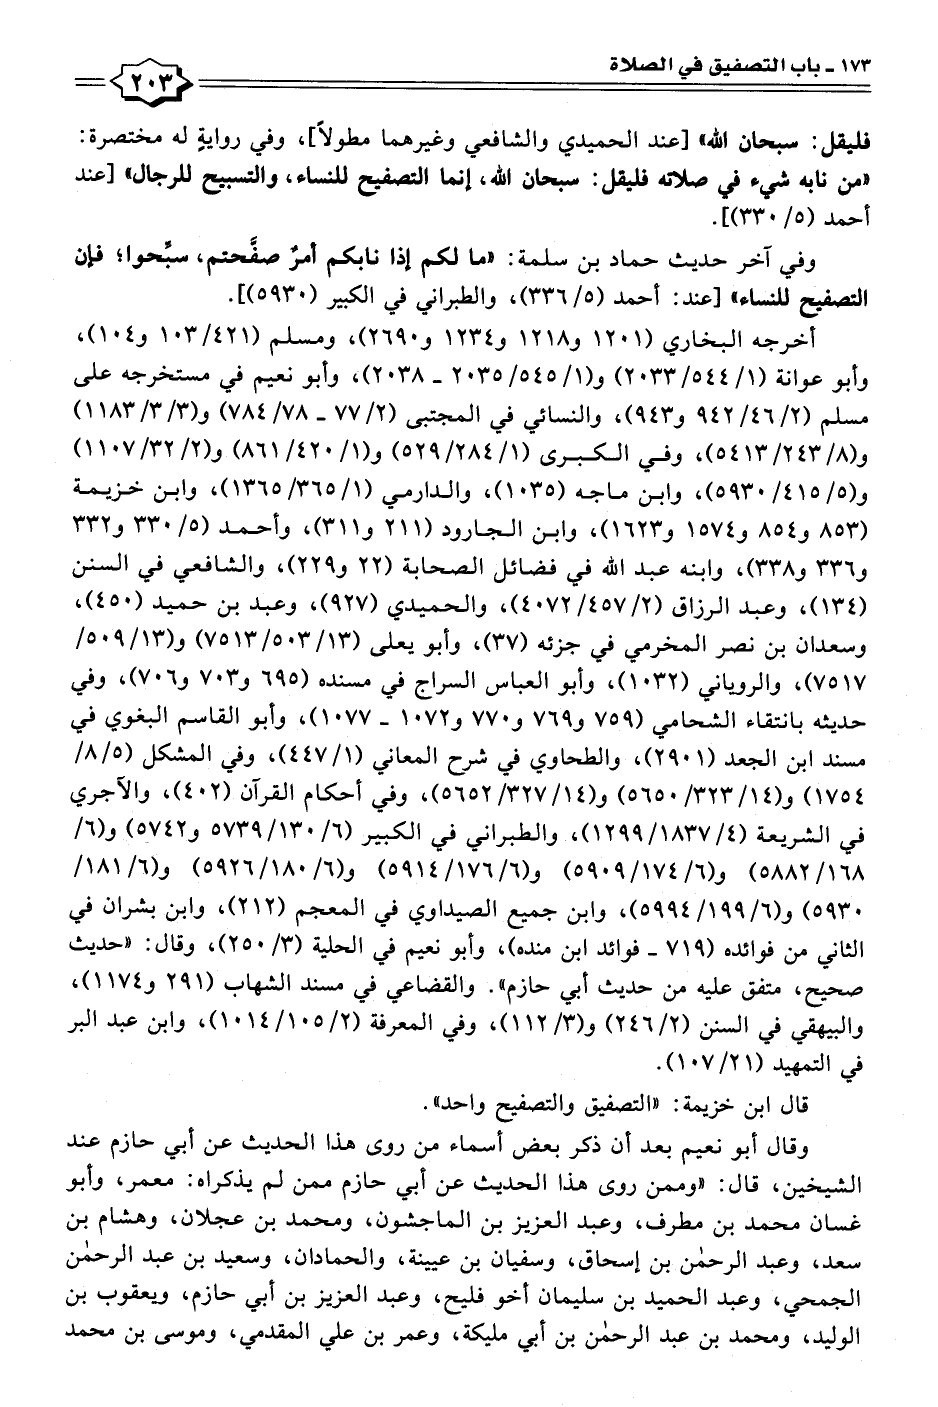 ١٧٣ - باب التصفيق في الصلاة
٢٠٣
فليقل: سبحان الله» [عند الحميدي والشافعي وغيرهما مطولاً]، وفي روايةٍ له مختصرة:
«من نابه شيء في صلاته فليقل: سبحان الله، إنما التصفيح للنساء، والتسبيح للرجال» [عند
أحمد (٥/ ٣٣٠)].
وفي آخر حديث حماد بن سلمة: «ما لكم إذا نابكم أمرٌ صفَّحتم، سبِّحوا؛ فإن
التصفيح للنساء» [عند: أحمد (٥/ ٣٣٦)، والطبراني في الكبير (٥٩٣٠)].
أخرجه البخاري (١٢٠١ و١٢١٨ و١٢٣٤ و٢٦٩٠)، ومسلم (٤٢١/ ١٠٣ و١٠٤)،
وأبو عوانة (١/ ٥٤٤/ ٢٠٣٣) و(١/ ٥٤٥/ ٢٠٣٥ - ٢٠٣٨)، وأبو نعيم في مستخرجه على
مسلم (٢/ ٤٦/ ٩٤٢ و٩٤٣)، والنسائي في المجتبى (٢/ ٧٧ - ٧٨/ ٧٨٤) و(٣/ ٣/ ١١٨٣)
و(٨/ ٢٤٣/ ٥٤١٣)، وفي الكبرى (١/ ٢٨٤/ ٥٢٩) و(١/ ٤٢٠/ ٨٦١) و(٢/ ٣٢/ ١١٠٧)
و(٥/ ٤١٥/ ٥٩٣٠)، وابن ماجه (١٠٣٥)، والدارمي (١/ ٣٦٥/ ١٣٦٥)، وابن خزيمة
(٨٥٣ و٨٥٤ و١٥٧٤ و١٦٢٣)، وابن الجارود (٢١١ و٣١١)، وأحمد (٥/ ٣٣٠ و٣٣٢
و٣٣٦ و٣٣٨)، وابنه عبد الله في فضائل الصحابة (٢٢ و٢٢٩)، والشافعي في السنن
(١٣٤)، وعبد الرزاق (٢/ ٤٥٧/ ٤٠٧٢)، والحميدي (٩٢٧)، وعبد بن حميد (٤٥٠)،
وسعدان بن نصر المخرمي في جزئه (٣٧)، وأبو يعلى (١٣/ ٥٠٣/ ٧٥١٣) و(١٣/ ٥٠٩/
٧٥١٧)، والروياني (١٠٣٢)، وأبو العباس السراج في مسنده (٦٩٥ و٧٠٣ و٧٠٦)، وفي
حديثه بانتقاء الشحامي (٧٥٩ و٧٦٩ و٧٧٠ و١٠٧٢ - ١٠٧٧)، وأبو القاسم البغوي في
مسند ابن الجعد (٢٩٠١)، والطحاوي في شرح المعاني (١/ ٤٤٧)، وفي المشكل (٥/ ٨/
١٧٥٤) و(١٤/ ٣٢٣/ ٥٦٥٠) و(١٤/ ٣٢٧/ ٥٦٥٢)، وفي أحكام القرآن (٤٠٢)، والآجري
في الشريعة (٤/ ١٨٣٧/ ١٢٩٩)، والطبراني في الكبير (٦/ ١٣٠/ ٥٧٣٩ و٥٧٤٢) و(٦/
١٦٨/ ٥٨٨٢) و(٦/ ١٧٤/ ٥٩٠٩) و(٦/ ١٧٦/ ٥٩١٤) و(٦/ ١٨٠/ ٥٩٢٦) و(٦/ ١٨١/
٥٩٣٠) و(٦/ ١٩٩/ ٥٩٩٤)، وابن جميع الصيداوي في المعجم (٢١٢)، وابن بشران في
الثاني من فوائده (٧١٩ - فوائد ابن منده)، وأبو نعيم في الحلية (٣/ ٢٥٠)، وقال: «حديث
صحيح، متفق عليه من حديث أبي حازم». والقضاعي في مسند الشهاب (٢٩١ و١١٧٤)،
والبيهقي في السنن (٢/ ٢٤٦) و(٣/ ١١٢)، وفي المعرفة (٢/ ١٠٥/ ١٠١٤)، وابن عبد البر
في التمهيد (٢١/ ١٠٧).
قال ابن خزيمة: «التصفيق والتصفيح واحد».
وقال أبو نعيم بعد أن ذكر بعض أسماء من روى هذا الحديث عن أبي حازم عند
الشيخين، قال: «وممن روى هذا الحديث عن أبي حازم ممن لم يذكراه: معمر، وأبو
غسان محمد بن مطرف، وعبد العزيز بن الماجشون، ومحمد بن عجلان، وهشام بن
سعد، وعبد الرحمٰن بن إسحاق، وسفيان بن عيينة، والحمادان، وسعيد بن عبد الرحمٰن
الجمحي، وعبد الحميد بن سليمان أخو فليح، وعبد العزيز بن أبي حازم، ويعقوب بن
الوليد، ومحمد بن عبد الرحمٰن بن أبي مليكة، وعمر بن علي المقدمي، وموسى بن محمد